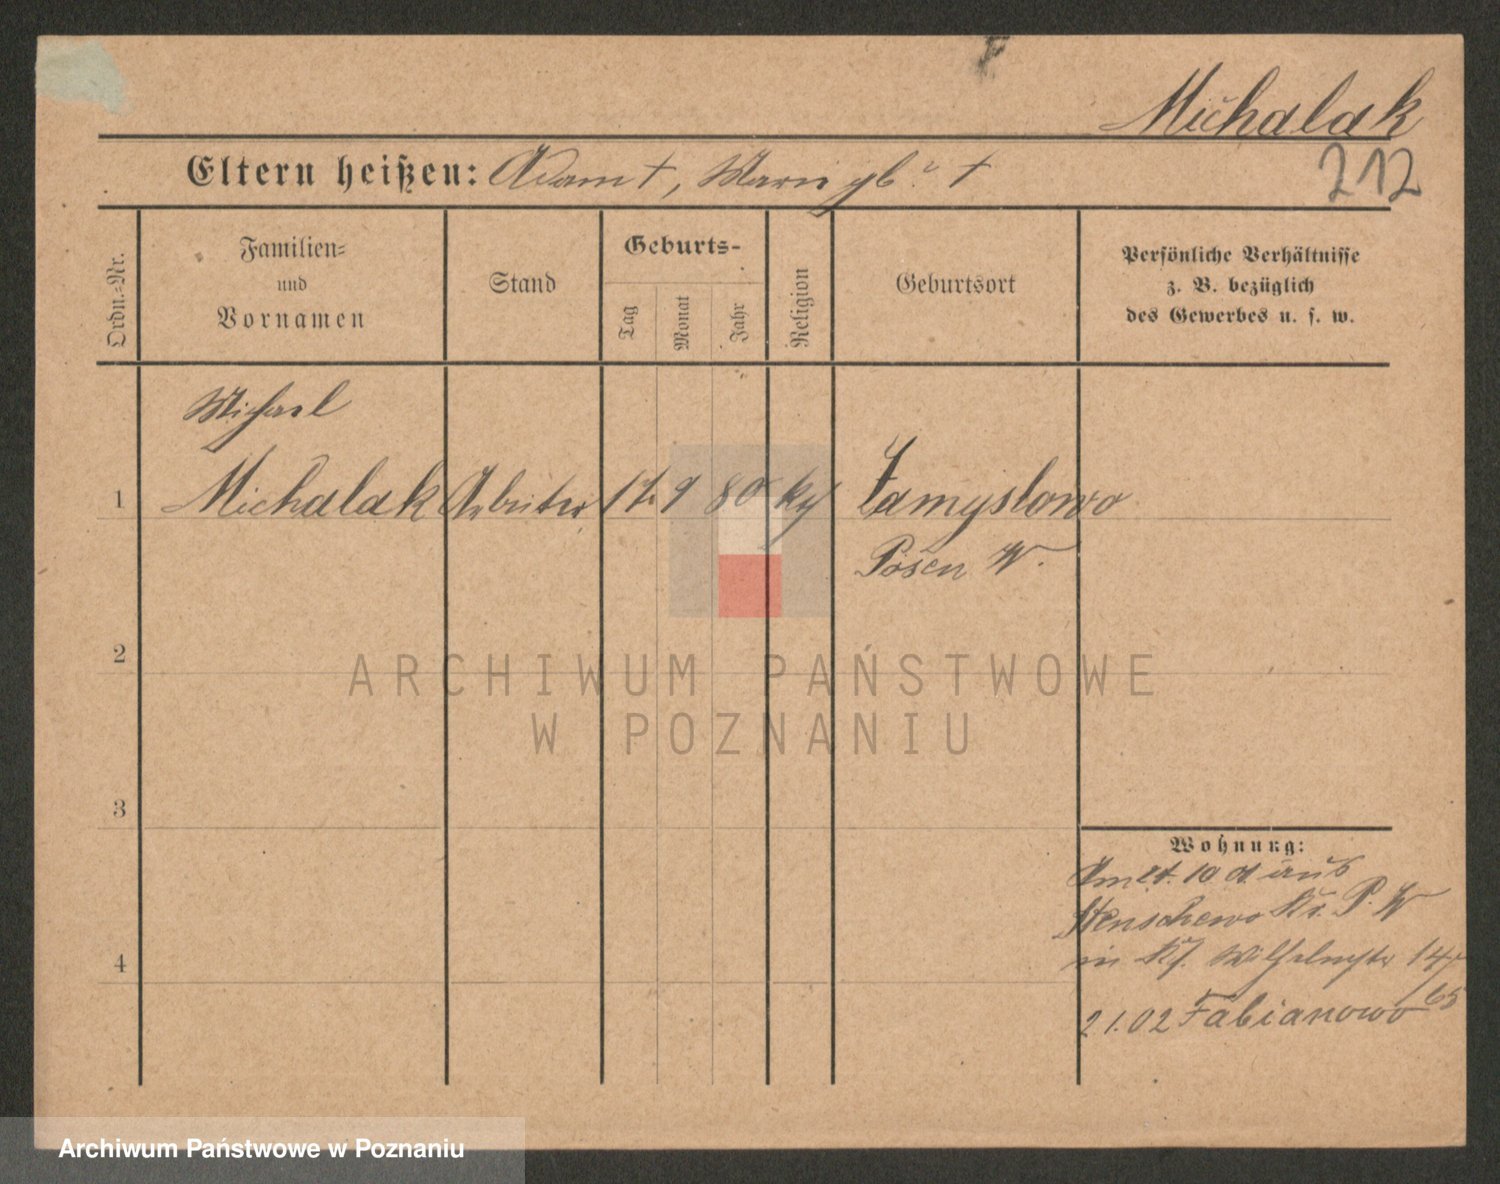 Michalak
212
Eltern heißen: Adam †, Marie gb ? †
Ordn.-Nr.
Familien-
und
Vornamen
Stand
Geburts-
Tag
Monat
Jahr
Religion
Geburtsort
Persönliche Verhältnisse
z. B. bezüglich
des Gewerbes u. s. w.
Michael
1 Michalak Arbeiter 9 80 Zamyslowo
Posen W.
2
ARCHIWUM PAŃSTWOWE
W POZNANIU
3
Wohnung:
aus
Stenschewo Kr. P. W
4
in Wilhelmstr 14
65
2 1.02 Fabianowo
Archiwum Państwowe w Poznaniu